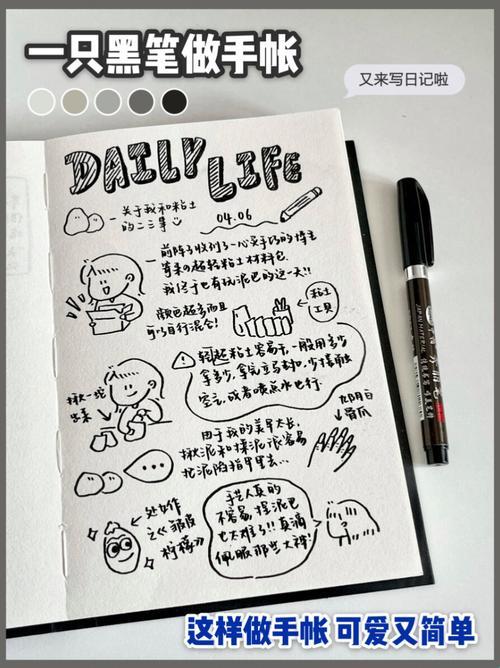 一只黑笔做手帐
又来写日记啦
DAILY LIFE
04.06
关于我和粘土
的二三事
前阵子收到了一心买手巧的博主
寄来的超轻粘土材料包
我终于也有玩泥巴的这一天!!
颜色超多而且
可以自行混合!
粘土
工具
轻粘土容易干,一般用多少
拿多少,拿完马封口,少接触
空气,或者喷点水也行.
揪一坨
出来
九阴白
骨爪
由于我的美甲太长,
揪泥和揉泥很容易
把泥陷指甲里去...
处女作
之<皱皮
柠檬>
手艺人真的
不容易,捏泥巴
也太难了!!真滴
佩服那些大神!
JAPAN MATERIAL
这样做手帐 可爱又简单